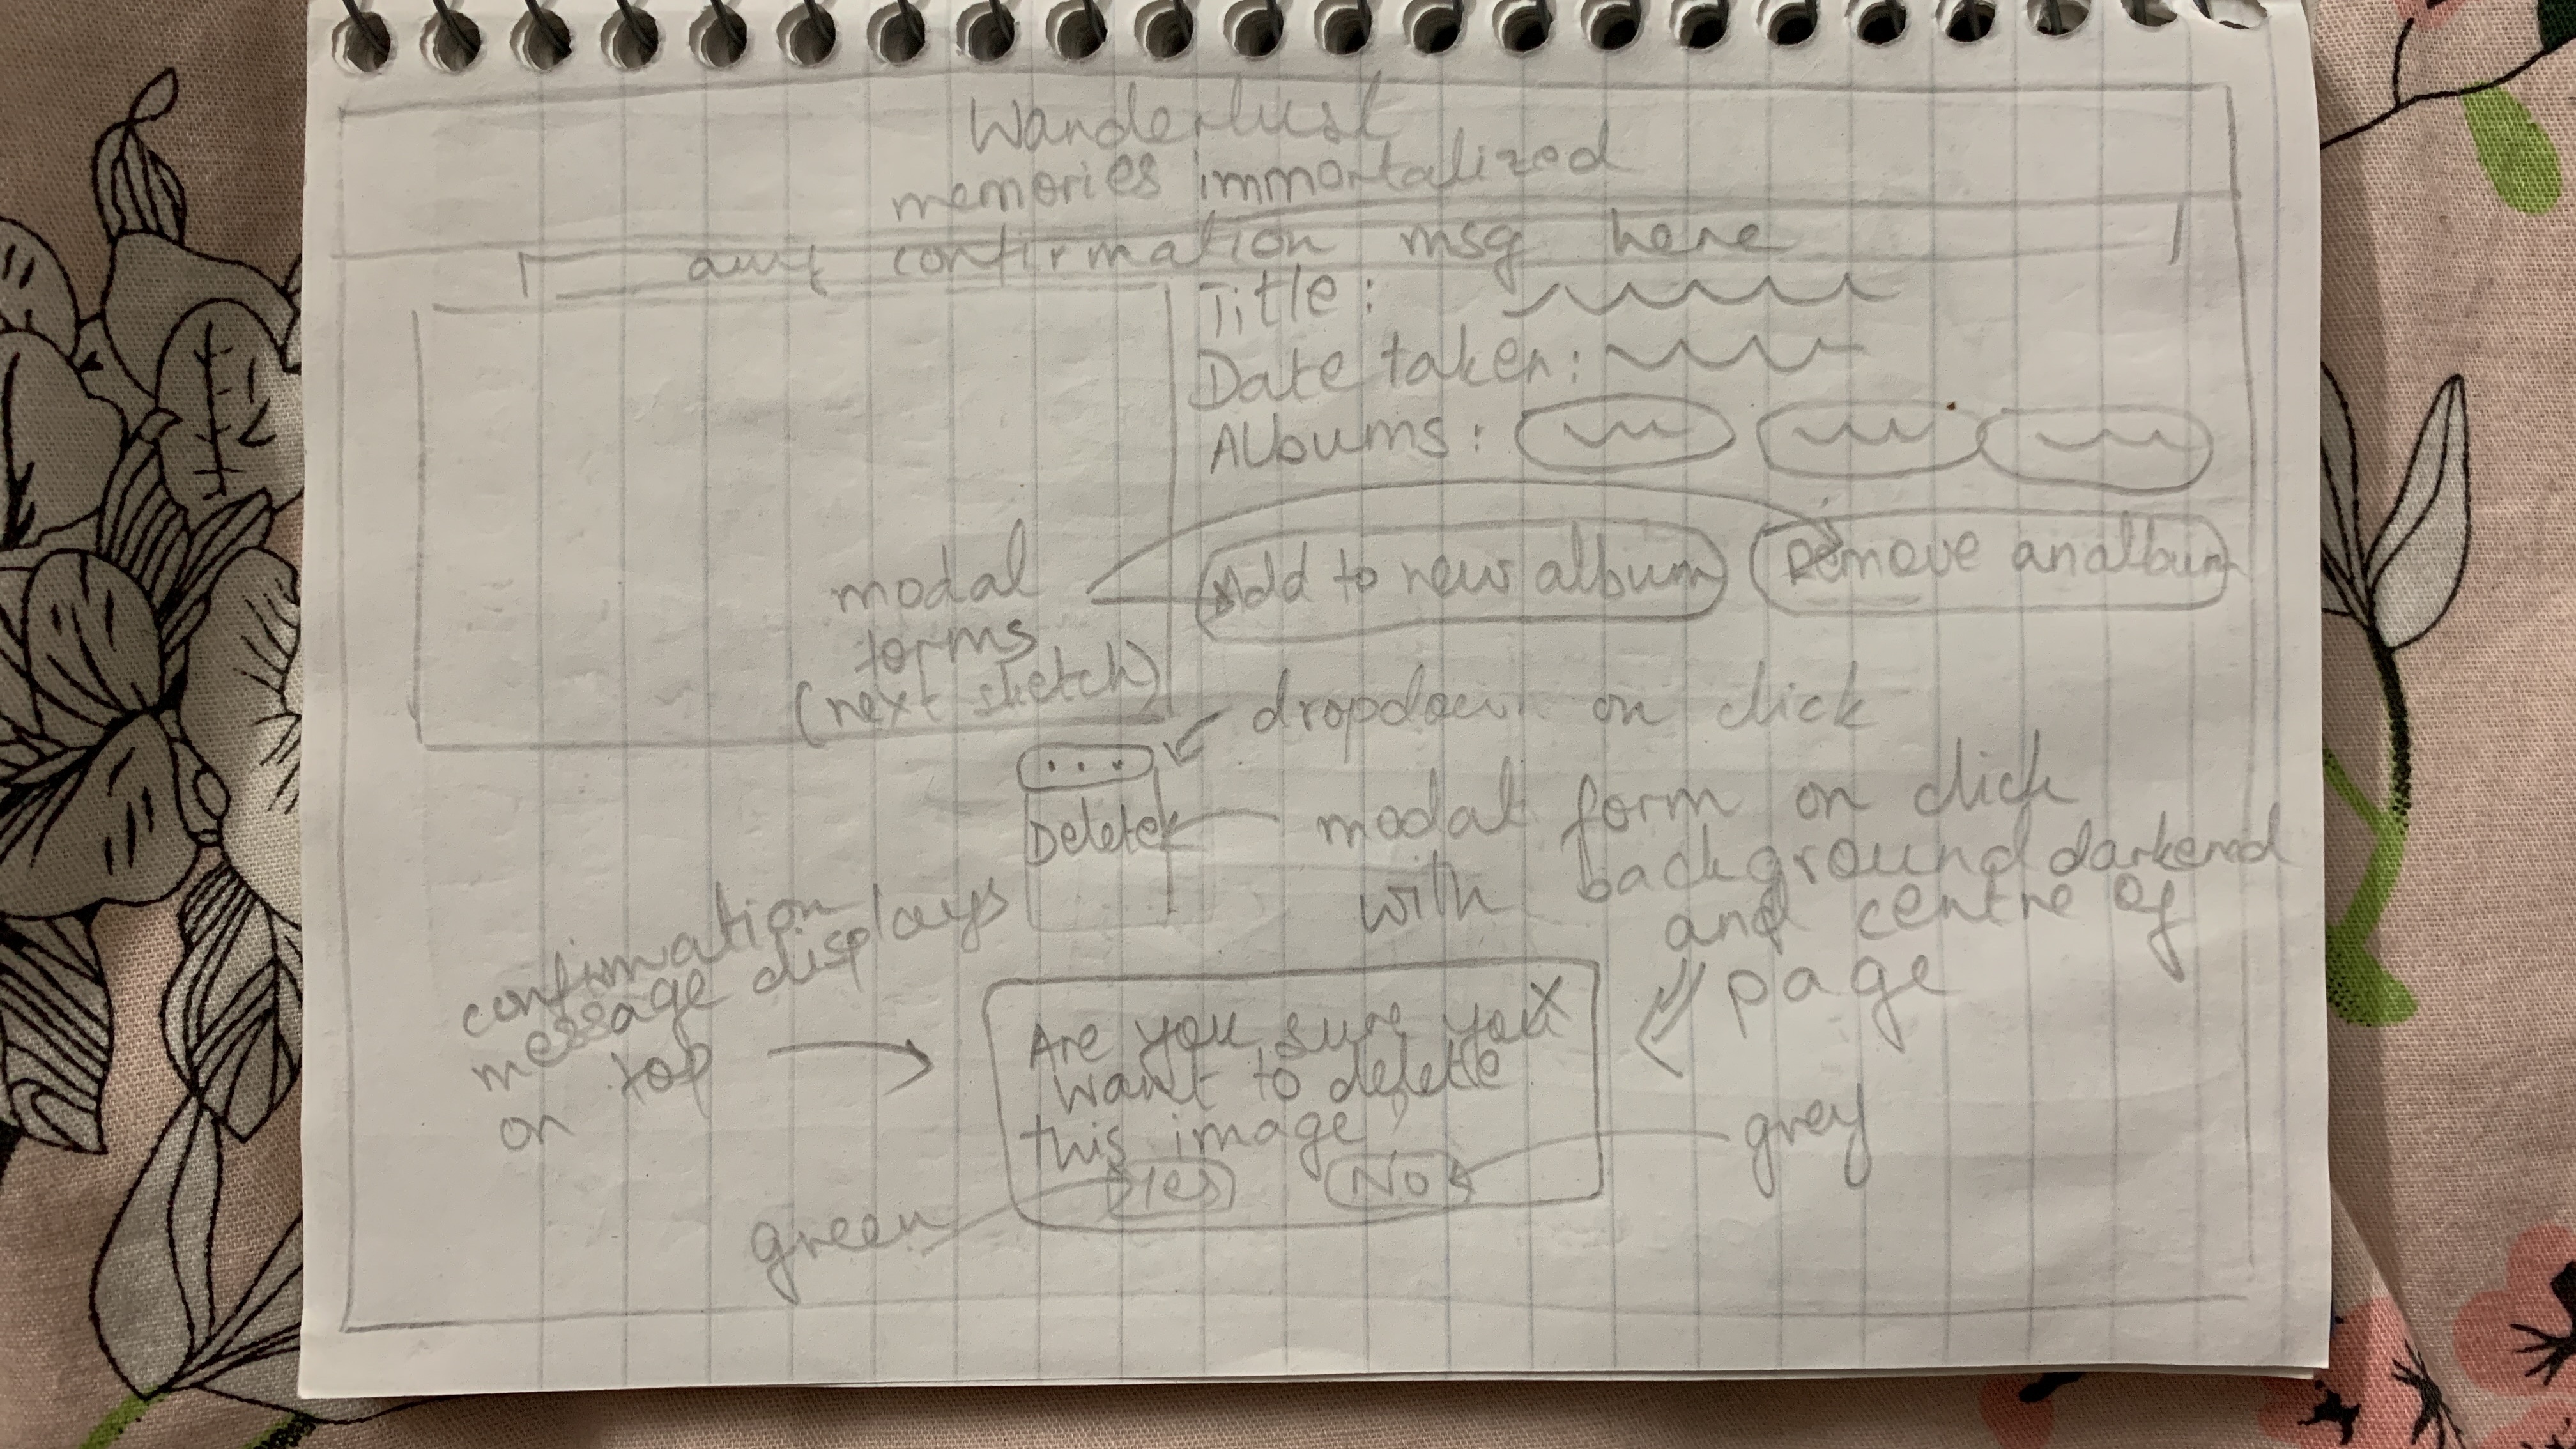 Wanderlust
memories immortalized
any confirmation msg here
Title:
Date taken:
Albums:
modal
forms
(next sketch)
Add to new album
Remove an album
...
dropdown on click
Delete
modal form on click
with background darkened
and centre of
page
confirmation
message displays
on top
X
Are you sure you
want to delete
this image?
Yes
No
green
grey